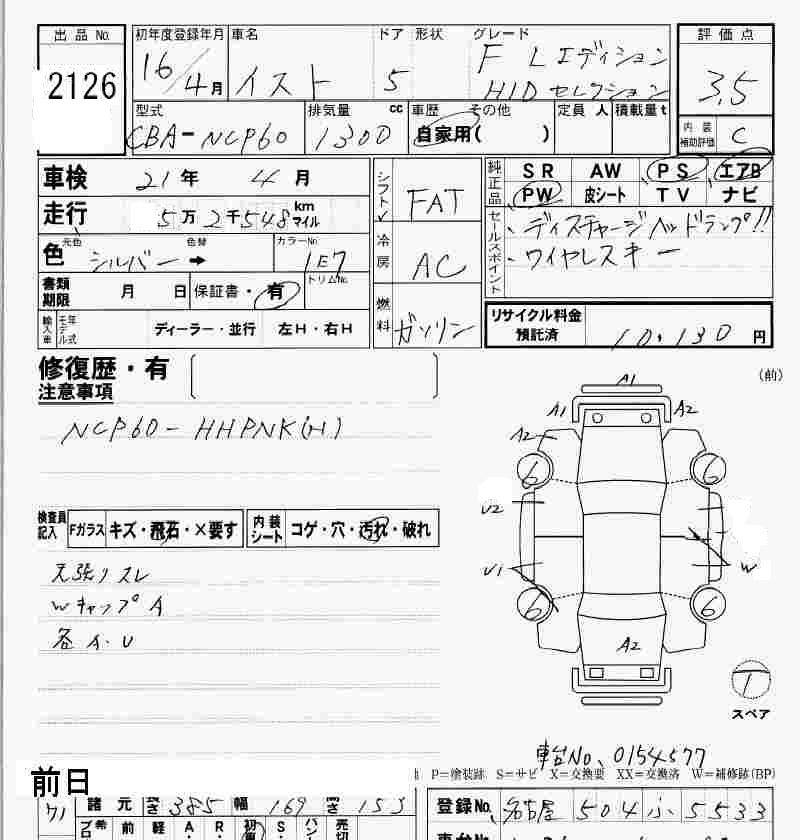 出品 No. 初年度登録年月 車名 ドア 形状 グレード 評価点
2126 16/4月 イスト 5 F Lエディション HIDセレクション 3.5
型式 排気量 cc 車歴 その他 定員 人 積載量 t 内装補助評価 C
CBA-NCP60 1300 自家用( )
車検 21年 4月 シフト FAT 純正品 SR AW PS エアB
PW 皮シート TV ナビ
走行 5万2千548 km マイル
セールスポイント ディスチャージヘッドランプ!!
ワイヤレスキー
色 元色 シルバー 色替 ➡ カラーNo 1E7 冷房 AC
書類期限 月 日 保証書・有 トリムNo.
輸入車 モデル年式 ディーラー・並行 左H・右H 燃料 ガソリン
リサイクル料金預託済 10,130 円
修復歴・有
注意事項
NCP60-HHPNK(H)
検査員記入 Fガラス キズ・飛石・×要す 内装シート コゲ・穴・汚れ・破れ
天張りスレ
WキャップA
各A・U
(前)
A1
A1 A2
A2
6 6
U2
U1 W
6 6
A2
1
スペア
車台No、0154577
P=塗装跡 S=サビ X=交換要 XX=交換済 W=補修跡(BP)
前日
諸元 長さ 385 幅 169 高さ 153
登録No. 名古屋 504 ふ 5533